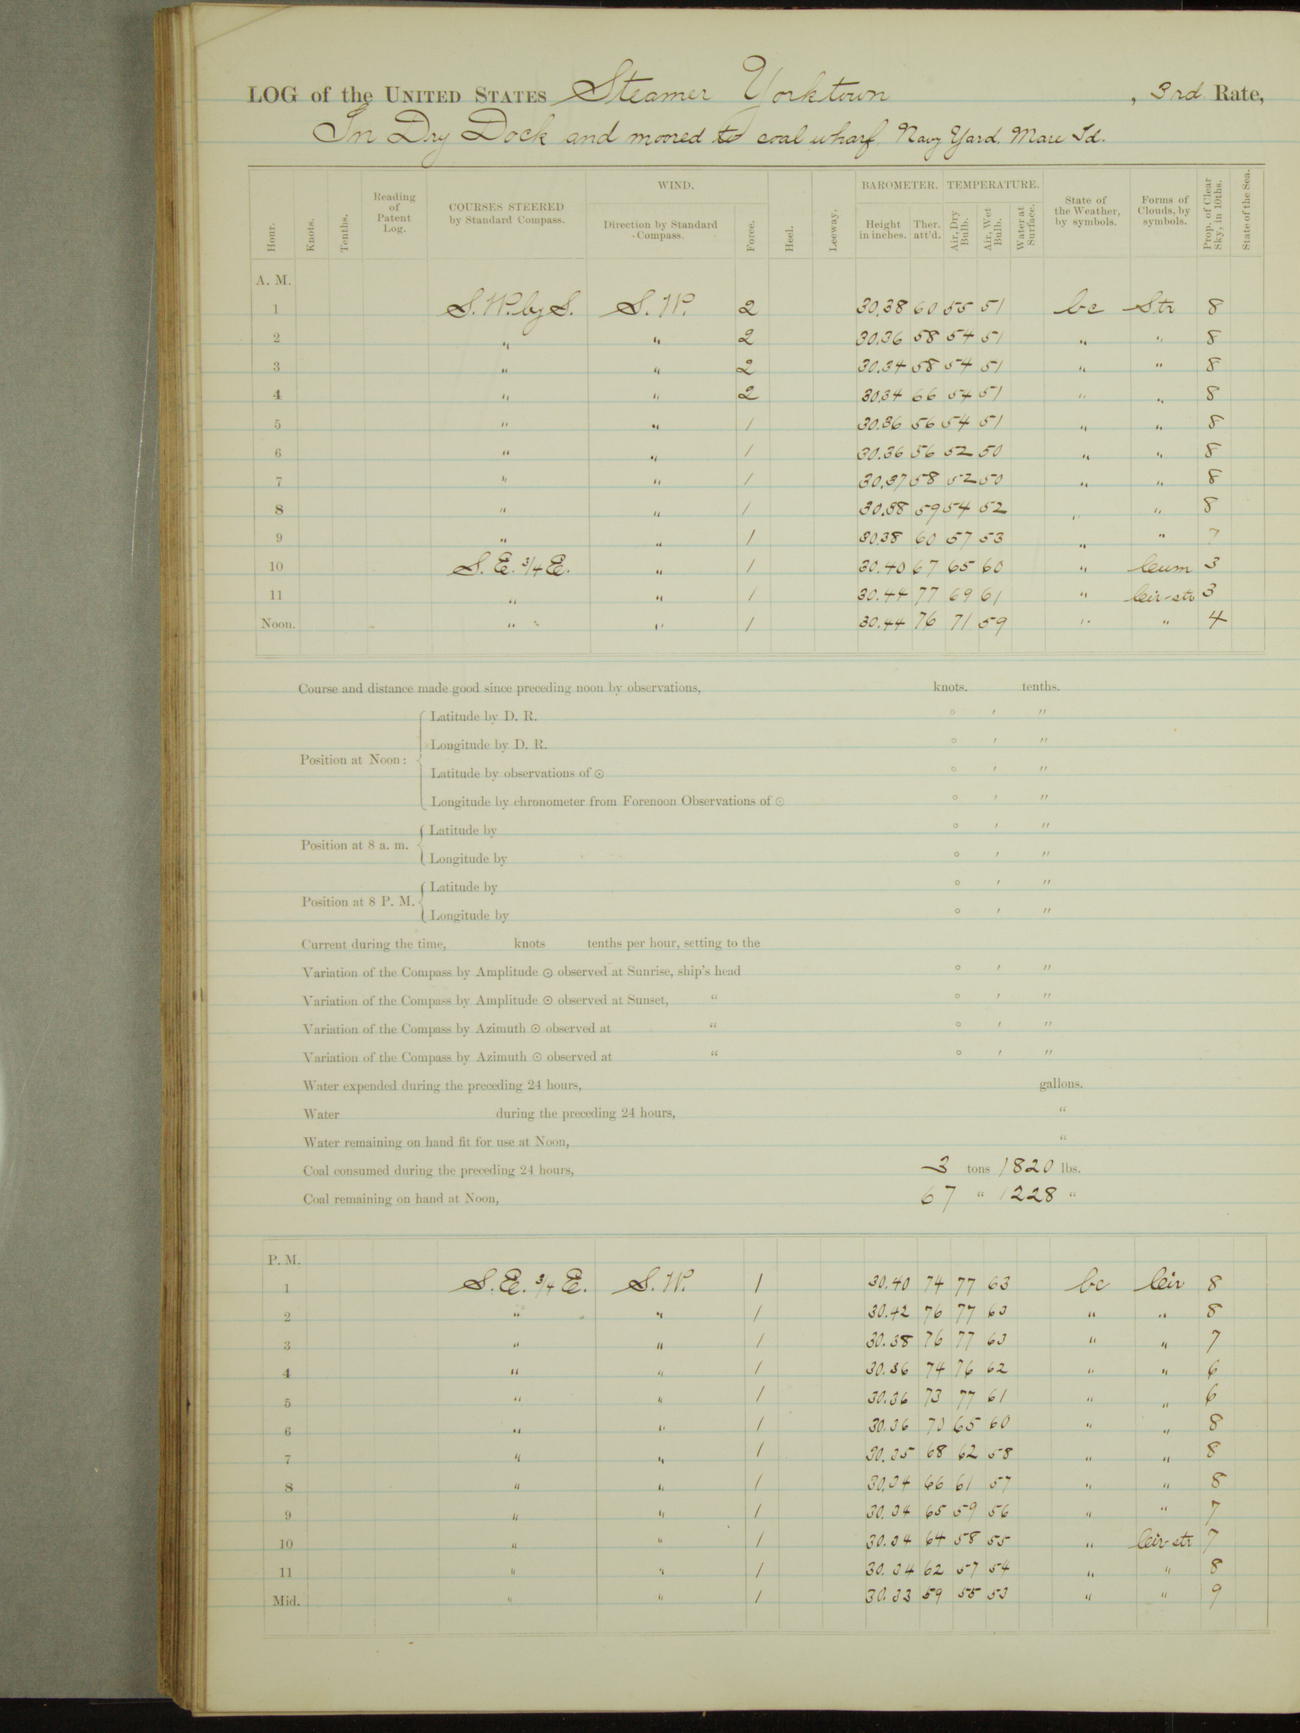 LOG of the UNITED STATES Steamer Yorktown, 3rd Rate,
In Dry Dock and moored to coal wharf Navy Yard, Mare Id.
WIND. BAROMETER. TEMPERATURE.
Hour. Knots. Tenths. Reading of Patent Log. COURSES STEERED by Standard Compass. Direction by Standard Compass. Force. Heel. Leeway. Height in inches. Ther. att'd. Air, Dry Bulb. Air, Wet Bulb. Water at Surface. State of the Weather, by symbols. Forms of Clouds, by symbols. Prop. of Clear Sky, in 10ths. State of the Sea.
A. M.
1 S.W. by S. S.W. 2 30.38 60 55 51 bc Str 8
2 " " 2 30.36 58 54 51 " " 8
3 " " 2 30.34 58 54 51 " " 8
4 " " 2 30.34 66 54 51 " " 8
5 " " 1 30.36 56 54 51 " " 8
6 " " 1 30.36 56 52 50 " " 8
7 " " 1 30.37 58 52 50 " " 8
8 " " 1 30.38 59 54 52 " " 8
9 " " 1 30.38 60 57 53 " " 7
10 S.E. 3/4 E. " 1 30.40 67 65 60 " Cum 3
11 " " 1 30.44 77 69 61 " Cir-str 3
Noon. " " 1 30.44 76 71 59 " " 4
Course and distance made good since preceding noon by observations, knots. tenths.
Position at Noon: Latitude by D. R. ° ′ ″
Longitude by D. R. ° ′ ″
Latitude by observations of ☉ ° ′ ″
Longitude by chronometer from Forenoon Observations of ☉ ° ′ ″
Position at 8 a. m. Latitude by ° ′ ″
Longitude by ° ′ ″
Position at 8 P. M. Latitude by ° ′ ″
Longitude by ° ′ ″
Current during the time, knots tenths per hour, setting to the
Variation of the Compass by Amplitude ☉ observed at Sunrise, ship's head ° ′ ″
Variation of the Compass by Amplitude ☉ observed at Sunset, " ° ′ ″
Variation of the Compass by Azimuth ☉ observed at " ° ′ ″
Variation of the Compass by Azimuth ☉ observed at " ° ′ ″
Water expended during the preceding 24 hours, gallons.
Water during the preceding 24 hours, "
Water remaining on hand fit for use at Noon, "
Coal consumed during the preceding 24 hours, 3 tons 1820 lbs.
Coal remaining on hand at Noon, 67 " 1228 "
P. M.
1 S.E. 3/4 E. S.W. 1 30.40 74 77 63 bc Cir 8
2 " " 1 30.42 76 77 63 " " 8
3 " " 1 30.38 76 77 63 " " 7
4 " " 1 30.36 74 76 62 " " 6
5 " " 1 30.36 73 77 61 " " 6
6 " " 1 30.36 73 65 60 " " 8
7 " " 1 30.35 68 62 58 " " 8
8 " " 1 30.34 66 61 57 " " 8
9 " " 1 30.34 65 59 56 " " 7
10 " " 1 30.34 64 58 55 " Cir-str 7
11 " " 1 30.34 62 57 54 " " 8
Mid. " " 1 30.33 59 55 53 " " 9